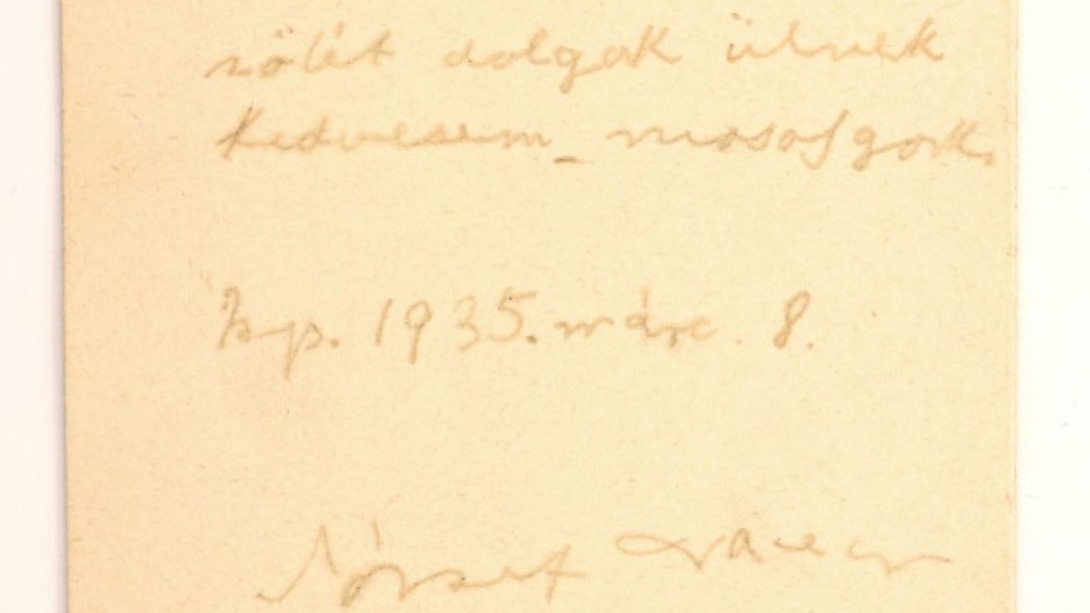 sölét dolgok ülnek
kedvesem – mosolygok.
Bp. 1935. márc. 8.
József